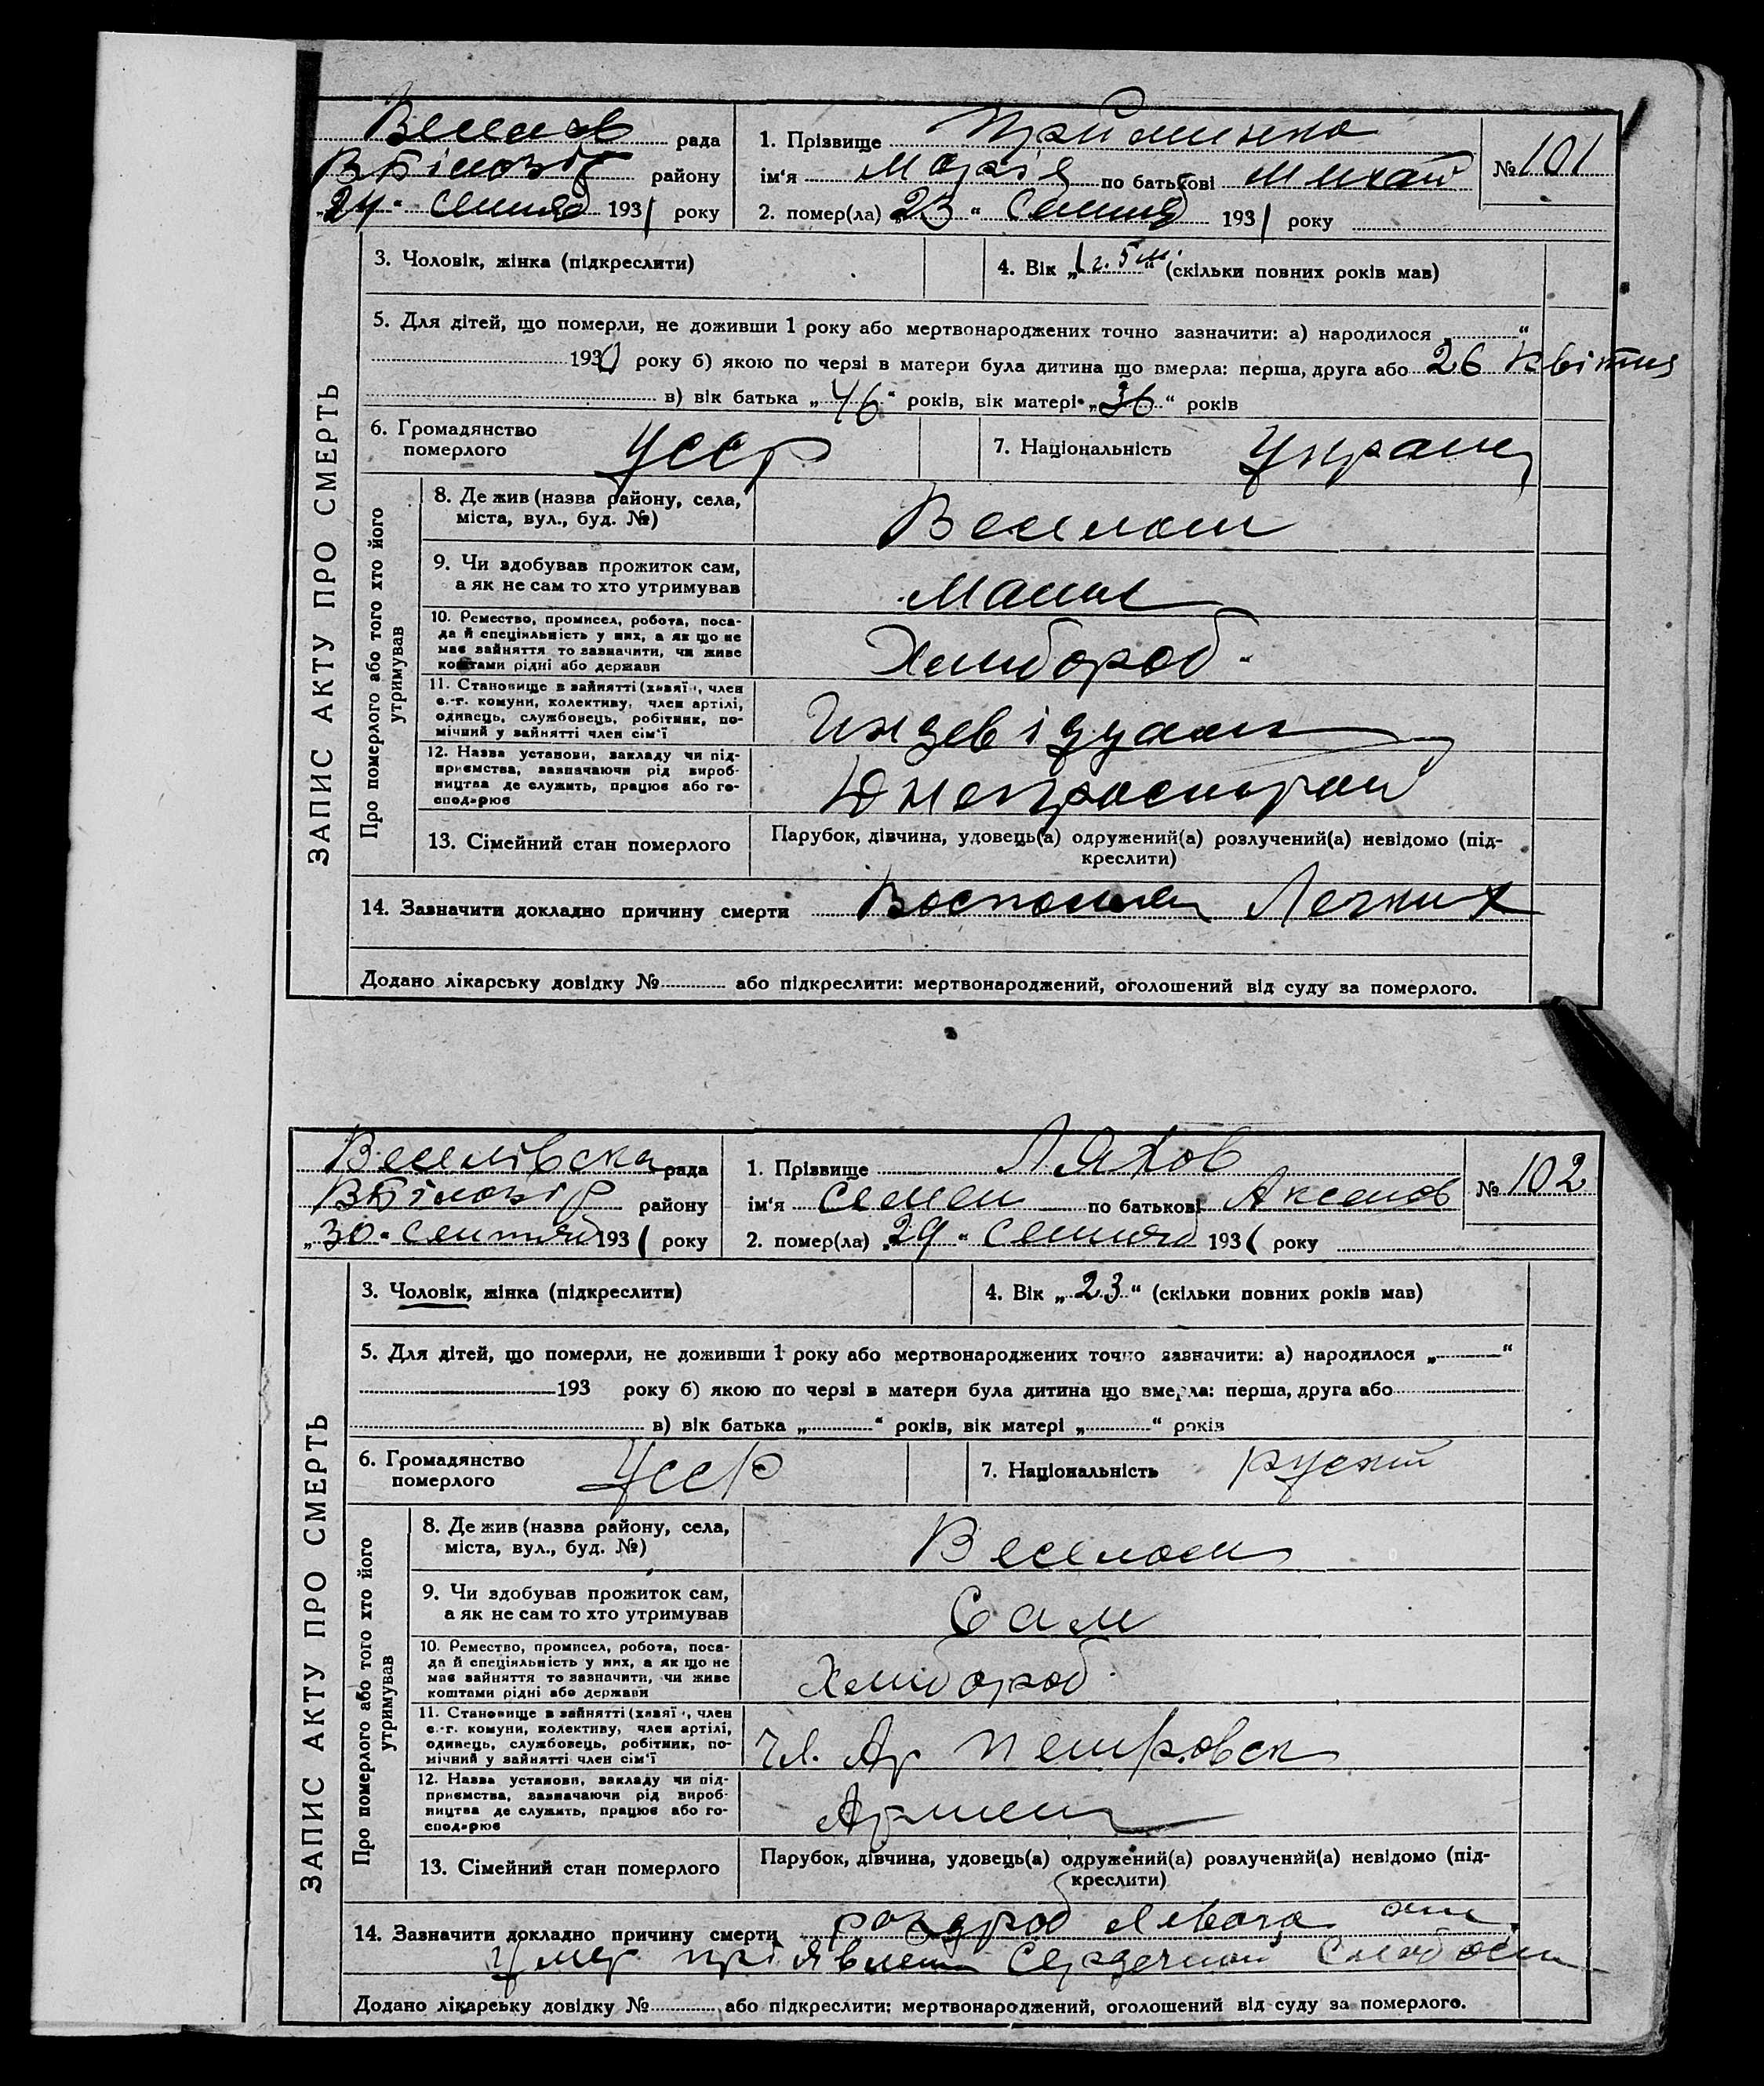 ЗАПИС АКТУ ПРО СМЕРТЬ
рада
В Білозір району
"24" 1931 року
1. Прізвище
ім'я Марія по батькові Михай
2. помер(ла) "23" 1931 року
№ 101
3. Чоловік, жінка (підкреслити)
4. Вік „1 г. 5 м.“ (скільки повних років мав)
5. Для дітей, що померли, не доживши 1 року або мертвонароджених точно зазначити: а) народилося „ “
1930 року б) якою по черзі в матери була дитина що вмерла: перша, друга або 26 квітня
в) вік батька „46“ років, вік матері „36“ років
6. Громадянство
померлого
УССР
7. Національність
Украин
Про померлого або того хто його
утримував
8. Де жив (назва району, села,
міста, вул., буд. №)
Веселом
9. Чи здобував прожиток сам,
а як не сам то хто утримував
10. Ремество, промисел, робота, поса-
да й спеціяльність у них, а як що не
має зайняття то зазначити, чи живе
коштами рідні або держави
Хлибороб
11. Становище в зайнятті (хазяїн, член
с.-г. комуни, колективу, член артілі,
одинець, службовець, робітник, по-
мічний у зайнятті член сім'ї
12. Назва установи, закладу чи під-
приємства, зазначаючи рід вироб-
ництва де служить, працює або го-
сподарює
Днепрострой
13. Сімейний стан померлого
Парубок, дівчина, удовець(а) одружений(а) розлучений(а) невідомо (під-
креслити)
14. Зазначити докладно причину смерти Воспален Легких
Додано лікарську довідку № або підкреслити: мертвонароджений, оголошений від суду за померлого.
ЗАПИС АКТУ ПРО СМЕРТЬ
Веселівська рада
В Білозір району
„30“ сентяб 1931 року
1. Прізвище Ляхов
ім'я Семен по батькові Аксенов
2. помер(ла) „29“ Сентяб 1931 року
№ 102
3. Чоловік, жінка (підкреслити)
4. Вік „23“ (скільки повних років мав)
5. Для дітей, що померли, не доживши 1 року або мертвонароджених точно зазначити: а) народилося „ “
193 року б) якою по черзі в матери була дитина що вмерла: перша, друга або
в) вік батька „ “ років, вік матері „ “ років
6. Громадянство
померлого
УССР
7. Національність
руский
Про померлого або того хто його
утримував
8. Де жив (назва району, села,
міста, вул., буд. №)
Веселом
9. Чи здобував прожиток сам,
а як не сам то хто утримував
Сам
10. Ремество, промисел, робота, поса-
да й спеціяльність у них, а як що не
має зайняття то зазначити, чи живе
коштами рідні або держави
Хлибороб
11. Становище в зайнятті (хазяїн, член
с.-г. комуни, колективу, член артілі,
одинець, службовець, робітник, по-
мічний у зайнятті член сім'ї
чл. Ар Петровск
12. Назва установи, закладу чи під-
приємства, зазначаючи рід вироб-
ництва де служить, працює або го-
сподарює
13. Сімейний стан померлого
Парубок, дівчина, удовець(а) одружений(а) розлучений(а) невідомо (під-
креслити)
14. Зазначити докладно причину смерти
умер при явлении Сердечной Слабости
Додано лікарську довідку № або підкреслити: мертвонароджений, оголошений від суду за померлого.